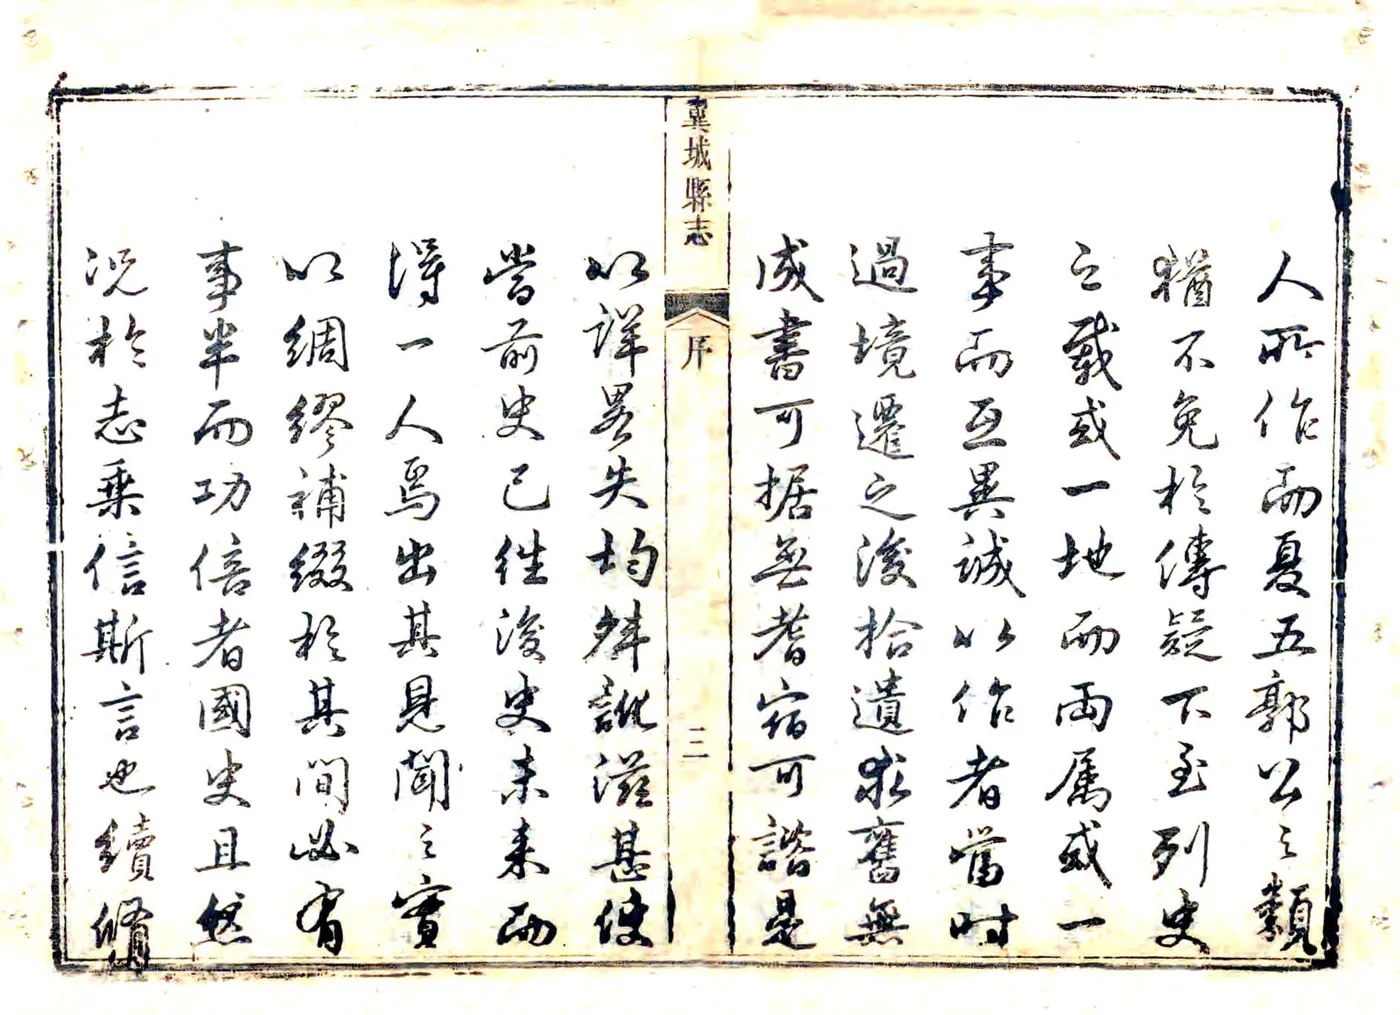 人所作而夏五郭公之類
猶不免於傳疑下至列史
之載或一地而兩屬或一
事而互異誠以作者當時
過境遷之後拾遺求舊無
成書可据無耆宿可諮是
冀城縣志
序
三
以詳畧失均舛訛滋甚使
當前史已往後史未來而
得一人焉出其見聞之實
以綢繆補綴於其間必有
事半而功倍者國史且然
況於志乘信斯言也續脩